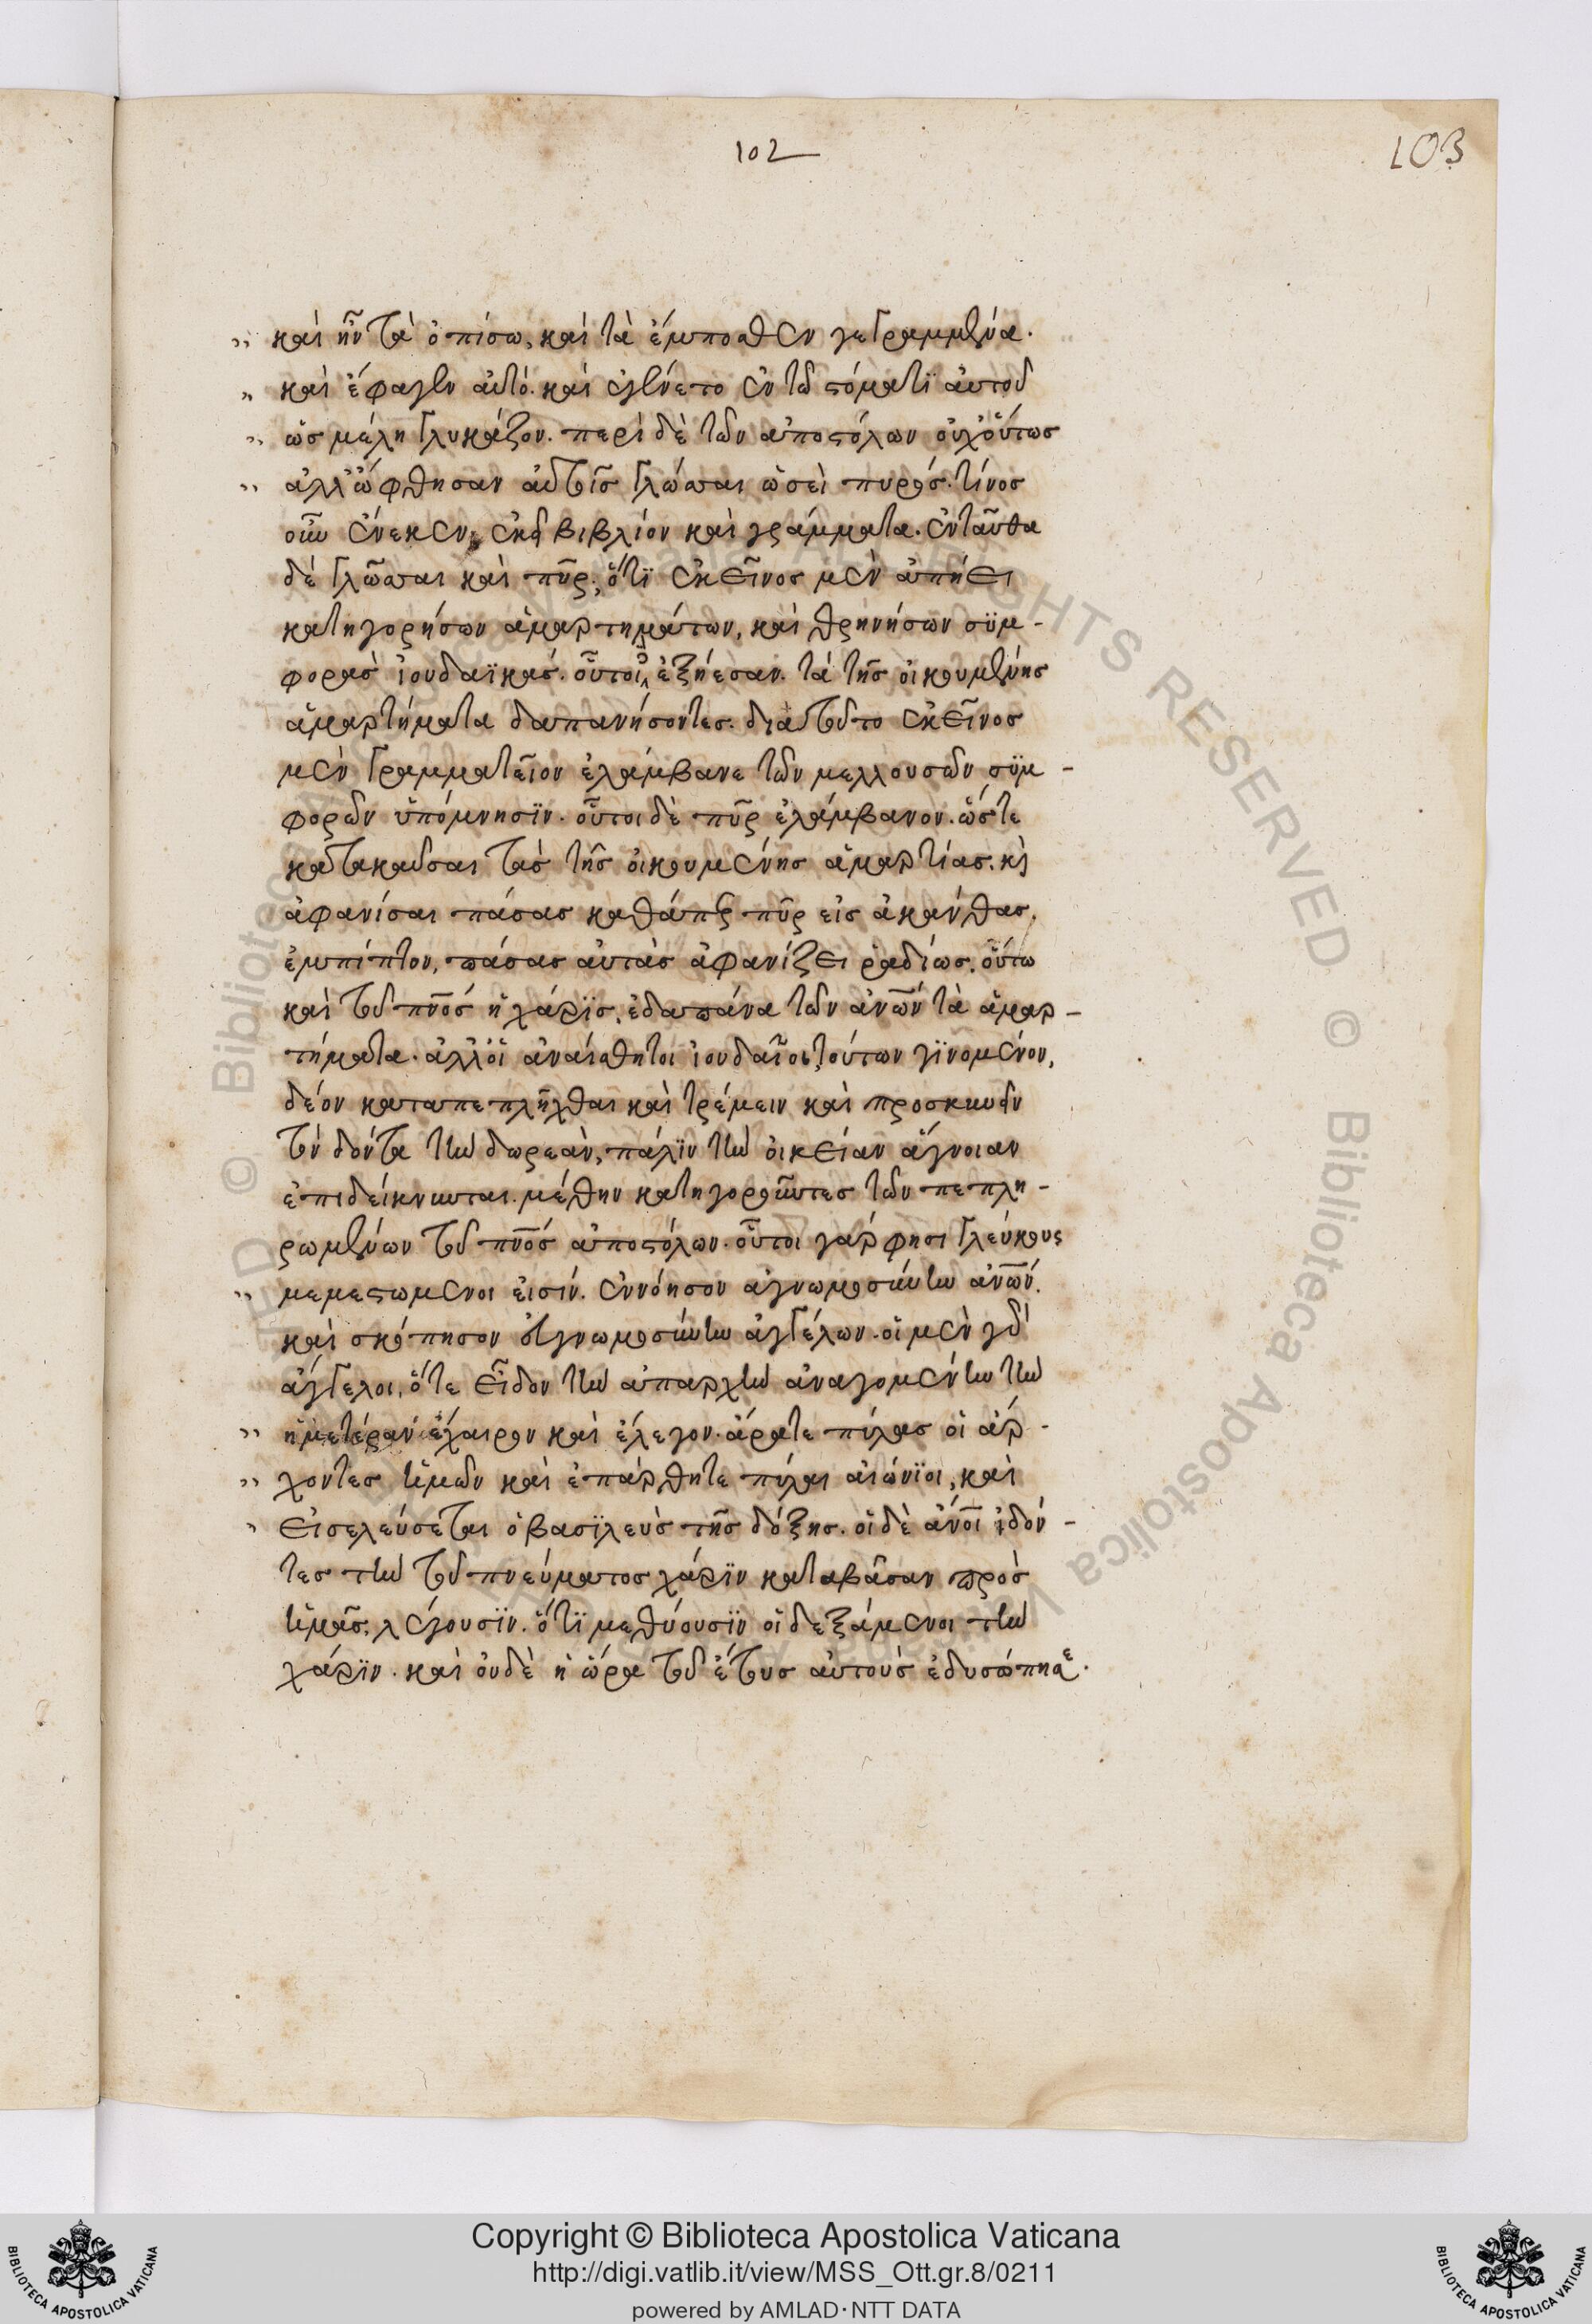 102
103
καὶ ἦν τὰ ὀπίσω, καὶ τὰ ἔμπροσθεν γεγραμμένα.
καὶ ἔφαγεν αὐτό. καὶ ἐγένετο ἐν τῷ στόματϊ αὐτοῦ
ὡς μέλη γλυκάζον. περὶ δὲ τῶν ἀποστόλων οὐχ' οὕτως
ἀλλ' ὤφθησαν αὐτοῖς γλῶσσαι ὡσεὶ πυρός. τίνος
οὖν ἕνεκεν, ἐκεῖ βιβλίον καὶ γράμματα. ἐνταῦθα
δὲ γλῶσσαι καὶ πῦρ; ὅτϊ ἐκεῖνος μὲν ἀπήει
κατηγορήσων ἁμαρτημάτων, καὶ θρηνήσων σϋμ-
φορὰς ἰουδαϊκάς. οὗτοι ἐξήεσαν. τὰ τῆς οἰκουμένης
ἁμαρτήματα δαπανήσοντες. διὰ τοῦτο ἐκεῖνος
μὲν γραμματεῖον ἐλάμβανε τῶν μελλουσῶν σϋμ-
φορῶν ὑπόμνησϊν. οὗτοι δὲ πῦρ ἐλάμβανον. ὥστε
κατακαῦσαι τὰς τῆς οἰκουμένης ἁμαρτίας. κὶ
ἀφανίσαι πάσας καθάπερ πῦρ εἰς ἀκάνθας,
ἐμπίπτον, πάσας αὐτὰς ἀφανίζει ῥαδίως. οὕτω
καὶ τοῦ πνς ἡ χάρϊς, ἐδαπάνα τῶν ἀνων τὰ ἁμαρ-
τήματα. ἀλλ' οἱ ἀναίσθητοι ἰουδαῖοι, τούτων γϊνομένων,
δέον καταπεπλῆχθαι καὶ τρέμειν καὶ προσκυνεῖν
τὸν δόντα τὴν δωρεὰν, πάλϊν τὴν οἰκείαν ἄγνοιαν
ἐπιδείκνυνται. μέθην κατηγοροῦντες τῶν πεπλη-
ρωμένων τοῦ πνς ἀποστόλων. οὗτοι γάρ φησι γλεύκους
μεμεστωμένοι εἰσίν. ἐννόησον ἀγνωμοσύνην ἀνων.
καὶ σκόπησον εὐγνωμοσύνην ἀγγέλων. οἱ μὲν γὰρ
ἄγγελοι, ὅτε εἶδον τὴν ἀπαρχὴν ἀναγομένην τὴν
ἡμετέραν ἔχαιρον καὶ ἔλεγον. ἄρατε πύλας οἱ ἄρ-
χοντες ὑμῶν καὶ ἐπάρθητε πύλαι αἰώνϊοι, καὶ
εἰσελεύσεται ὁ βασϊλεὺς τῆς δόξης. οἱ δὲ ἄνοι ἰδόν-
τες τὴν τοῦ πνεύματος χάρϊν καταβᾶσαν πρὸς
ὑμᾶς, λέγουσϊν. ὅτϊ μεθύουσϊν οἱ δεξάμενοι τὴν
χάρϊν. καὶ οὐδὲ ἡ ὥρα τοῦ ἔτους αὐτοὺς ἐδυσώπησε.
Copyright © Biblioteca Apostolica Vaticana
http://digi.vatlib.it/view/MSS_Ott.gr.8/0211
powered by AMLAD·NTT DATA
BIBLIOTECA APOSTOLICA VATICANA
BIBLIOTECA APOSTOLICA VATICANA